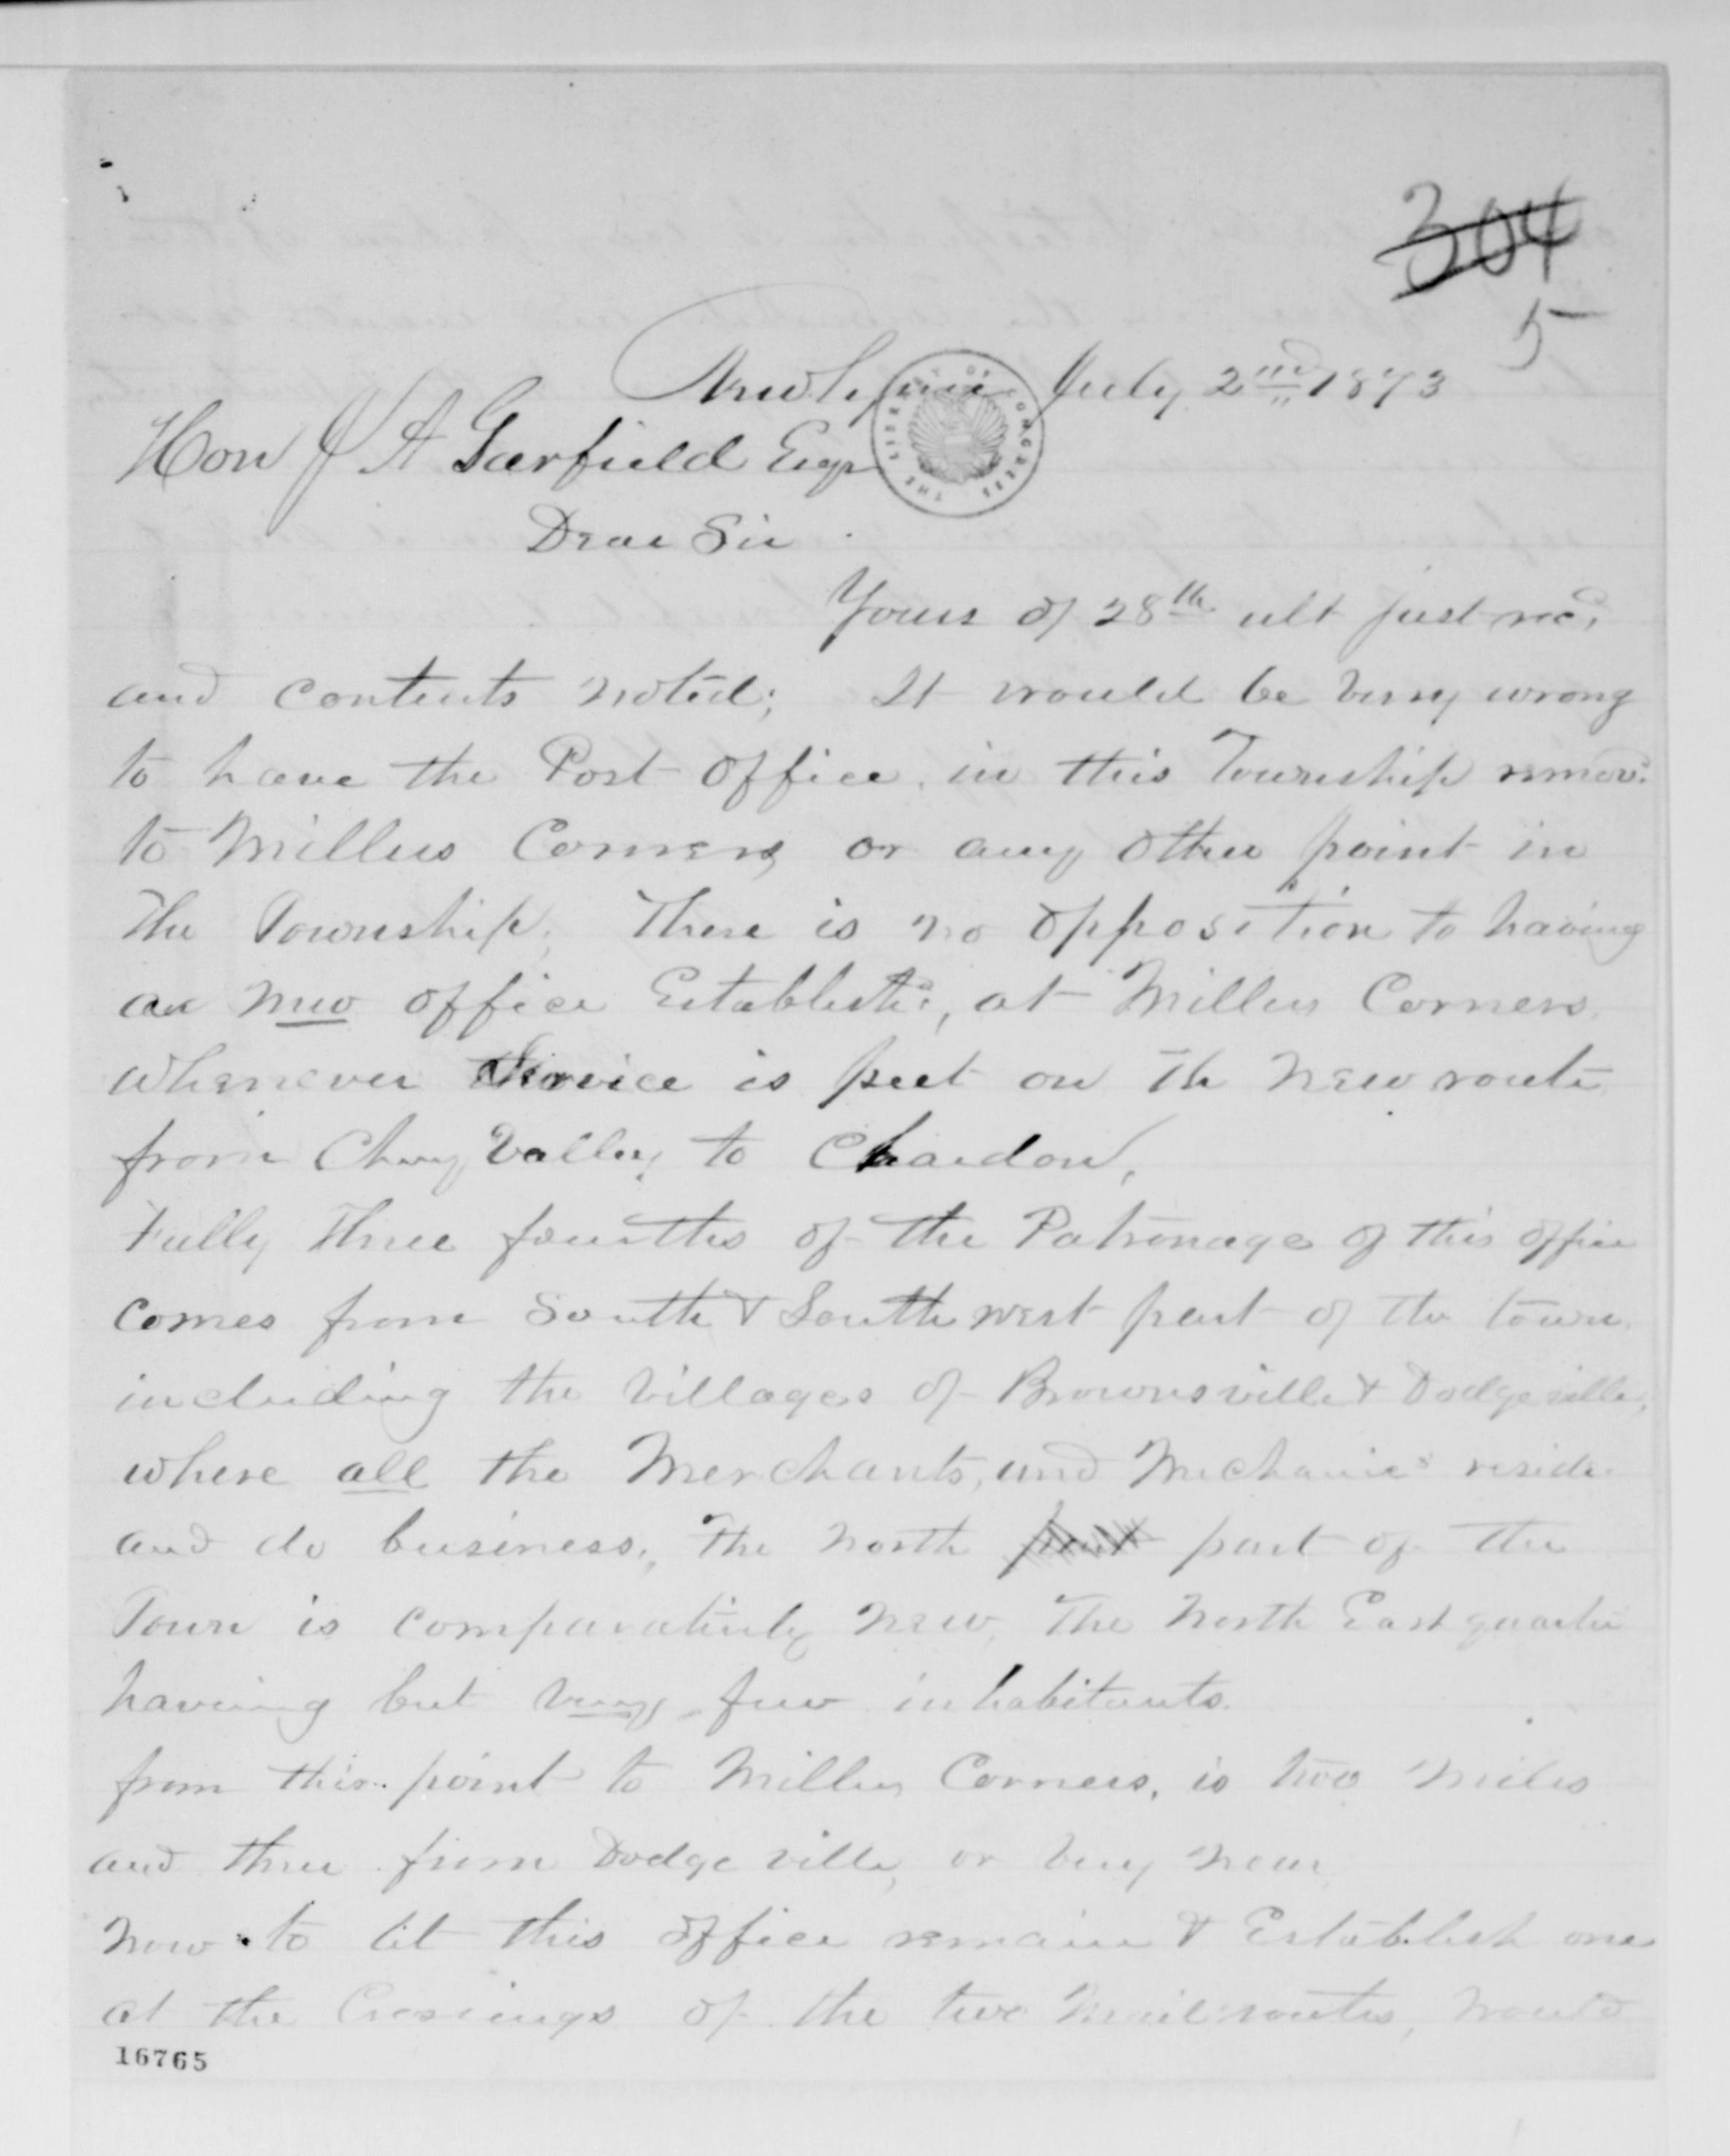 304
5
New Lyme July 2nd 1873
Hon J A Garfield Esqr
Dear Sir
Yours of 28th ult just recd,
and contents noted; It would be very wrong
to have the Post Office in this Township remov.d
to Millers Corners or any other point in
the Township; There is no opposition to having
a new office Establishd, at Millers Corners
whenever Service is put on the new route
from Cherry Valley to Chardon,
Fully three fourths of the Patronage of this office
comes from South & South west part of the town
including the villages of Brownsville & Dodgeville,
where all the Merchants, and Mechanics reside
and do business, The North part of the
Town is comparatively new, The North East quarter
having but very few inhabitants.
from this point to Millers Corners, is two miles
and three from Dodge ville, or very near
now to let this office remain & Establish one
at the Crossings of the two mail routes, would
16765
THE LIBRARY OF CONGRESS